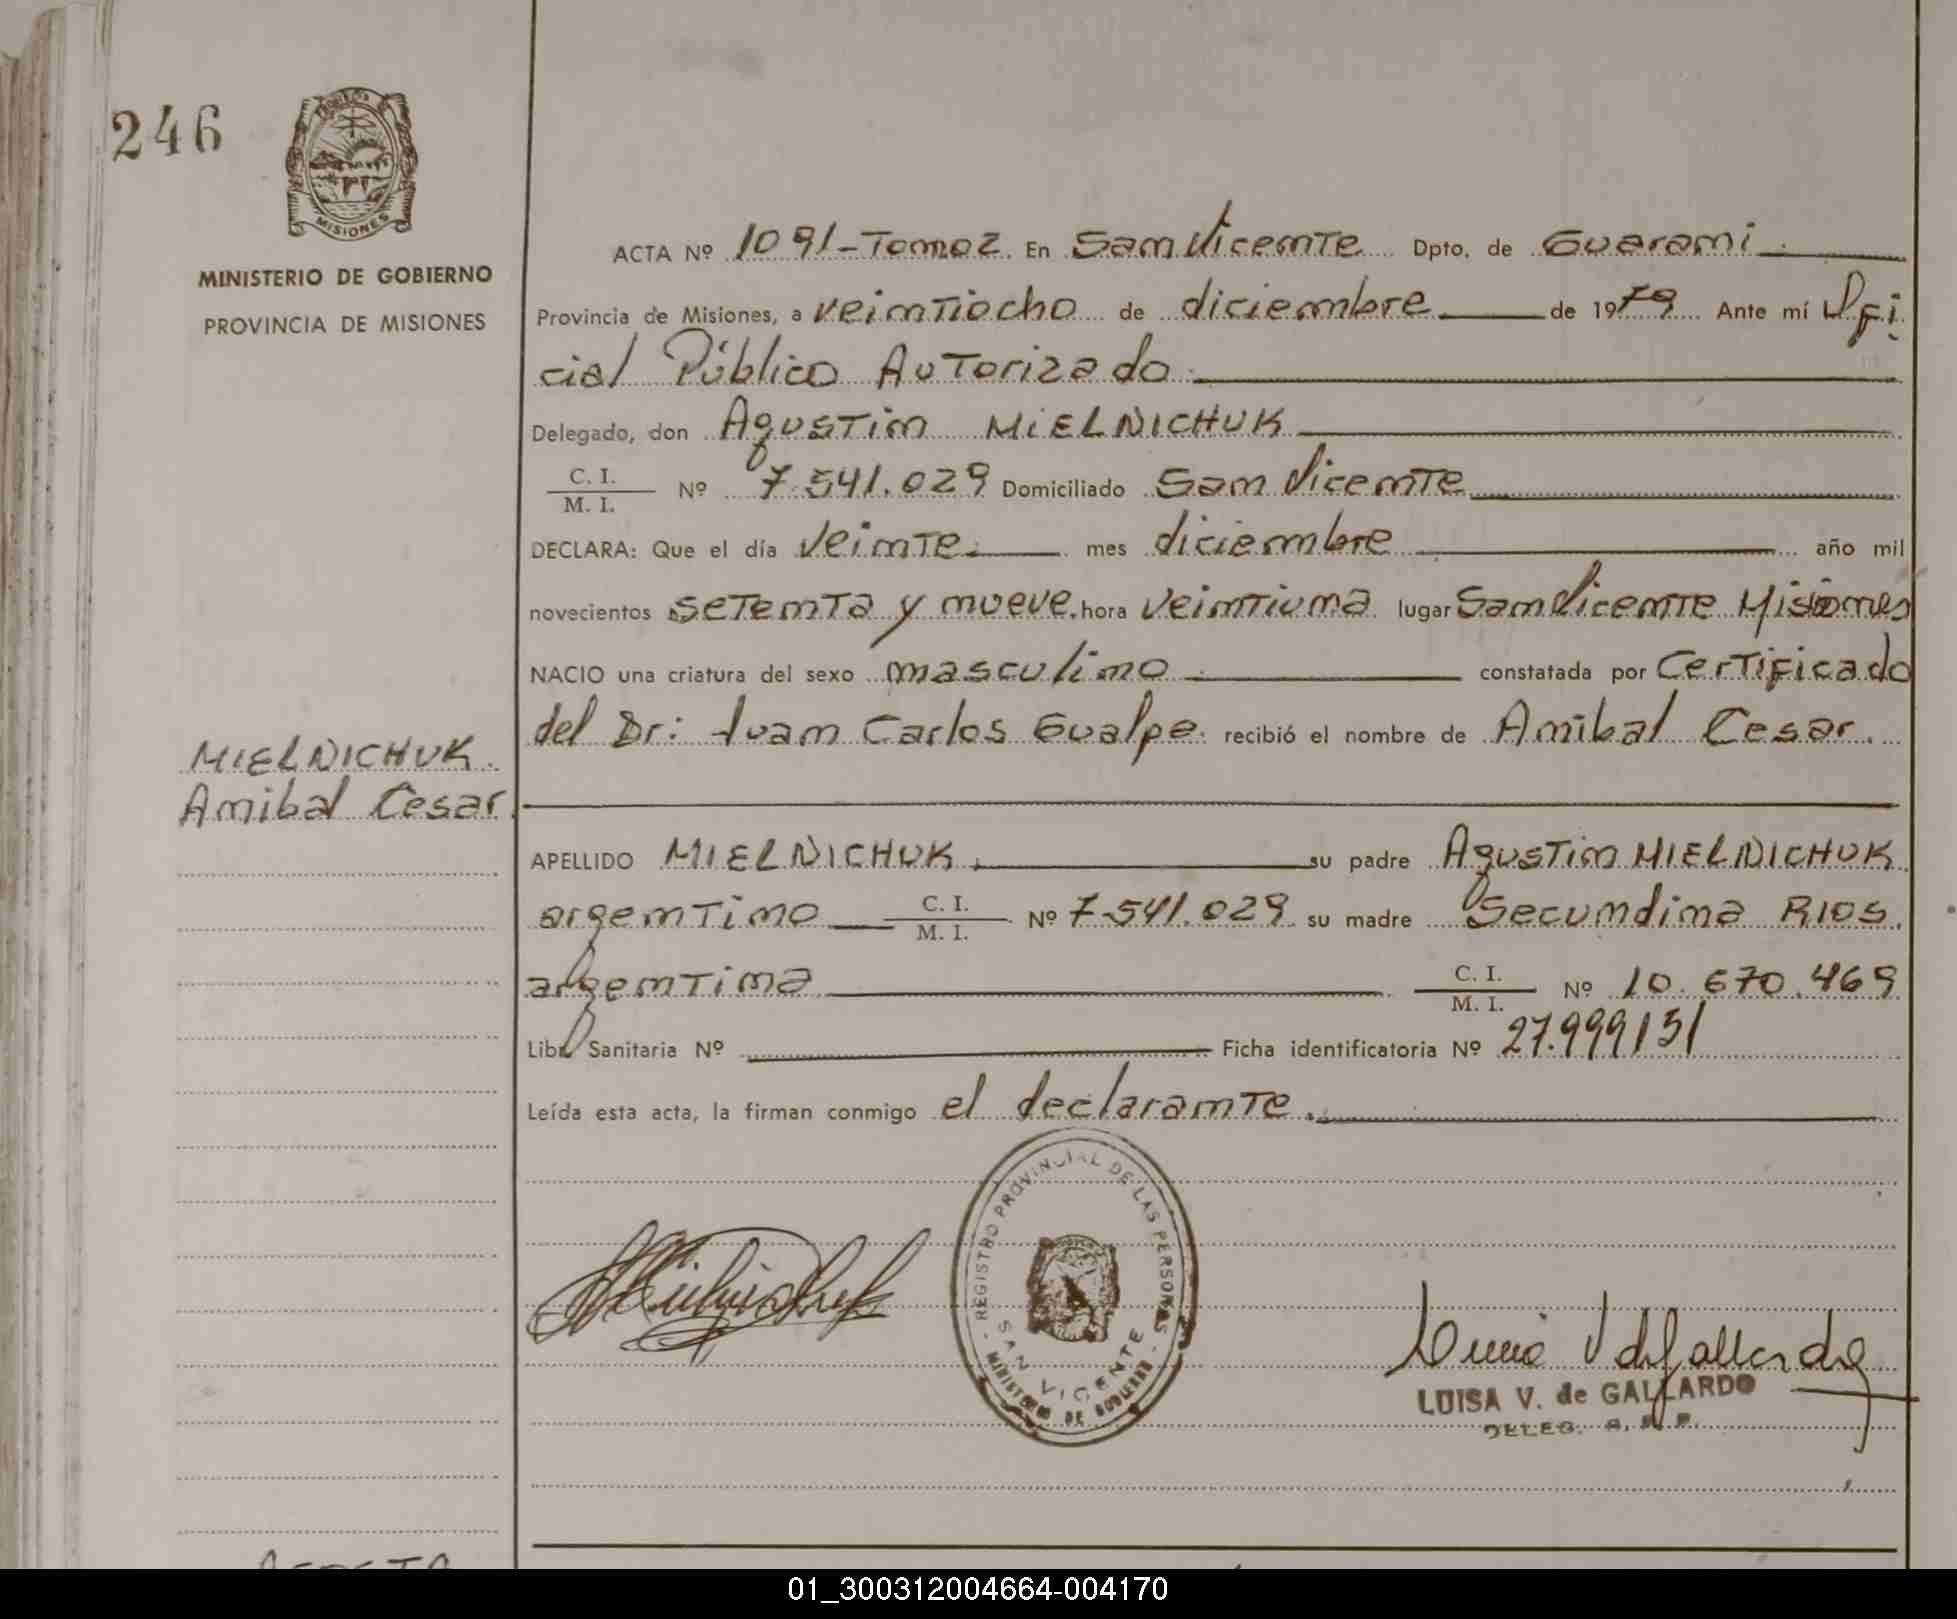 246
MISIONES
MINISTERIO DE GOBIERNO
PROVINCIA DE MISIONES
MIELNICHUK
Anibal Cesar.
ACTA Nº 1091-Tomo2. En San Vicente Dpto. de Guarani
Provincia de Misiones, a veintiocho de diciembre de 1979 Ante mí Ofi
cial Público Autorizado
Delegado, don Agustin MIELNICHUK
C. I.
M. I. Nº 7.541.029 Domiciliado San Vicente
DECLARA: Que el día veinte mes diciembre año mil
novecientos setenta y nueve. hora veintiuna lugar San Vicente Misiones
NACIO una criatura del sexo masculino constatada por Certificado
del Dr: Juan Carlos Gualpe. recibió el nombre de Anibal Cesar.
APELLIDO MIELNICHUK su padre Agustin MIELNICHUK
argentino C. I.
M. I. Nº 7.541.029 su madre Secundina RIOS.
argentina C. I.
M. I. Nº 10.670.469
Libr. Sanitaria Nº Ficha identificatoria Nº 27.999151
Leída esta acta, la firman conmigo el declarante.
REGISTRO PROVINCIAL DE LAS PERSONAS
SAN VICENTE
MINISTERIO DE GOBIERNO
LUISA V. de GALLARDO
DELEG. R. P. P.
01_300312004664-004170